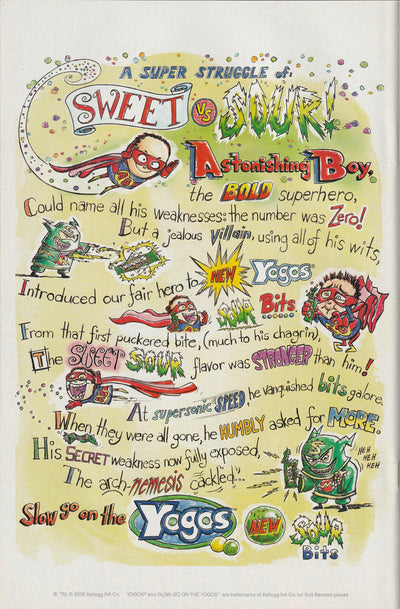 A SUPER STRUGGLE of:
SWEET VS SOUR!
Astonishing Boy,
the BOLD superhero,
Could name all his weaknesses: the number was Zero!
But a jealous villain, using all of his wits,
Introduced our fair hero to NEW Yogos
SOUR Bits
From that first puckered bite, (much to his chagrin),
The SWEET SOUR flavor was STRONGER than him!
At supersonic SPEED he vanquished bits galore,
When they were all gone, he HUMBLY asked for MORE.
His SECRET weakness now fully exposed,
The arch-nemesis cackled...
HEH
HEH
HEH
Slow go on the Yogos NEW SOUR
Bits
®, TM, © 2006 Kellogg NA Co. YOGOS® and SLOW GO ON THE YOGOS™ are trademarks of Kellogg NA Co. for fruit flavored pieces